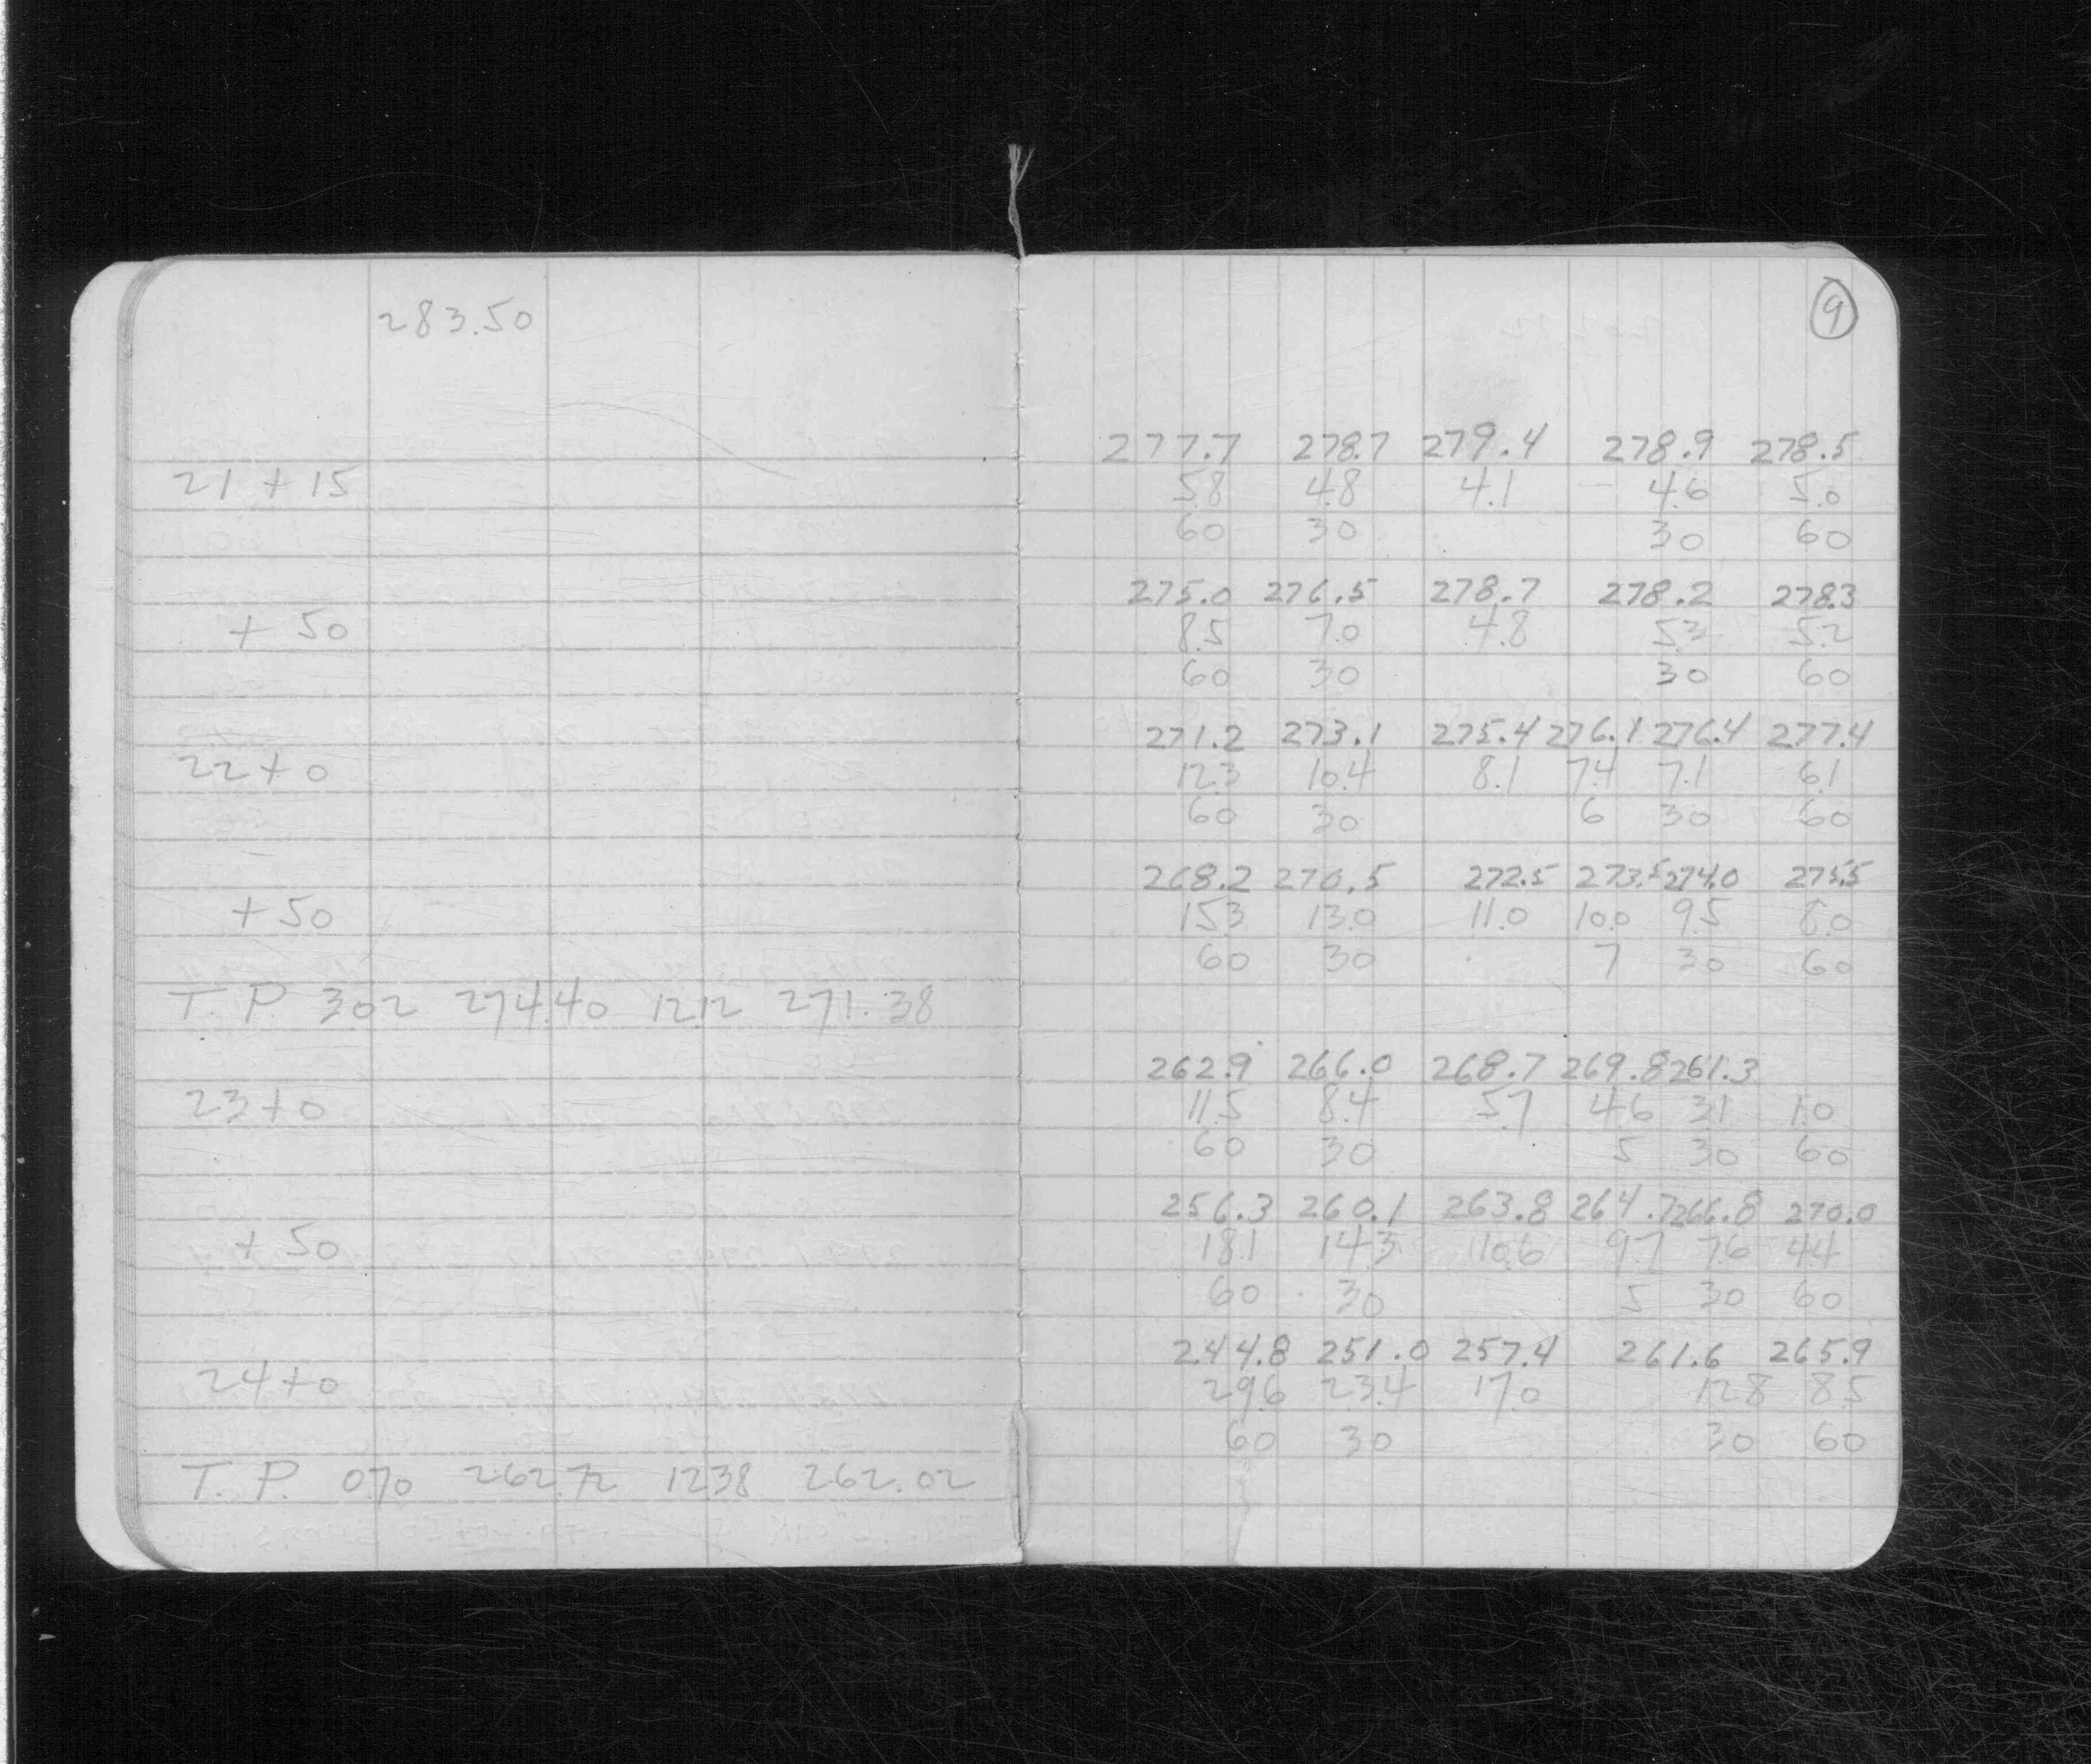 283.50
9
277.7 278.7 279.4 278.9 278.5
21 + 15 5.8 4.8 4.1 4.6 5.0
60 30 30 60
275.0 276.5 278.7 278.2 278.3
+ 50 8.5 7.0 4.8 5.3 5.2
60 30 30 60
271.2 273.1 275.4 276.1 276.4 277.4
22 + 0 12.3 10.4 8.1 7.4 7.1 6.1
60 30 6 30 60
268.2 270.5 272.5 273.5 274.0 275.5
+ 50 15.3 13.0 11.0 10.0 9.5 8.0
60 30 7 30 60
T. P. 3.02 274.40 12.12 271.38
262.9 266.0 268.7 269.8 261.3
23 + 0 11.5 8.4 5.7 4.6 3.1 1.0
60 30 5 30 60
256.3 260.1 263.8 264.7 266.8 270.0
+ 50 18.1 14.3 10.6 9.7 7.6 4.4
60 30 5 30 60
244.8 251.0 257.4 261.6 265.9
24 + 0 29.6 23.4 17.0 12.8 8.5
60 30 30 60
T. P. 0.70 262.72 12.38 262.02